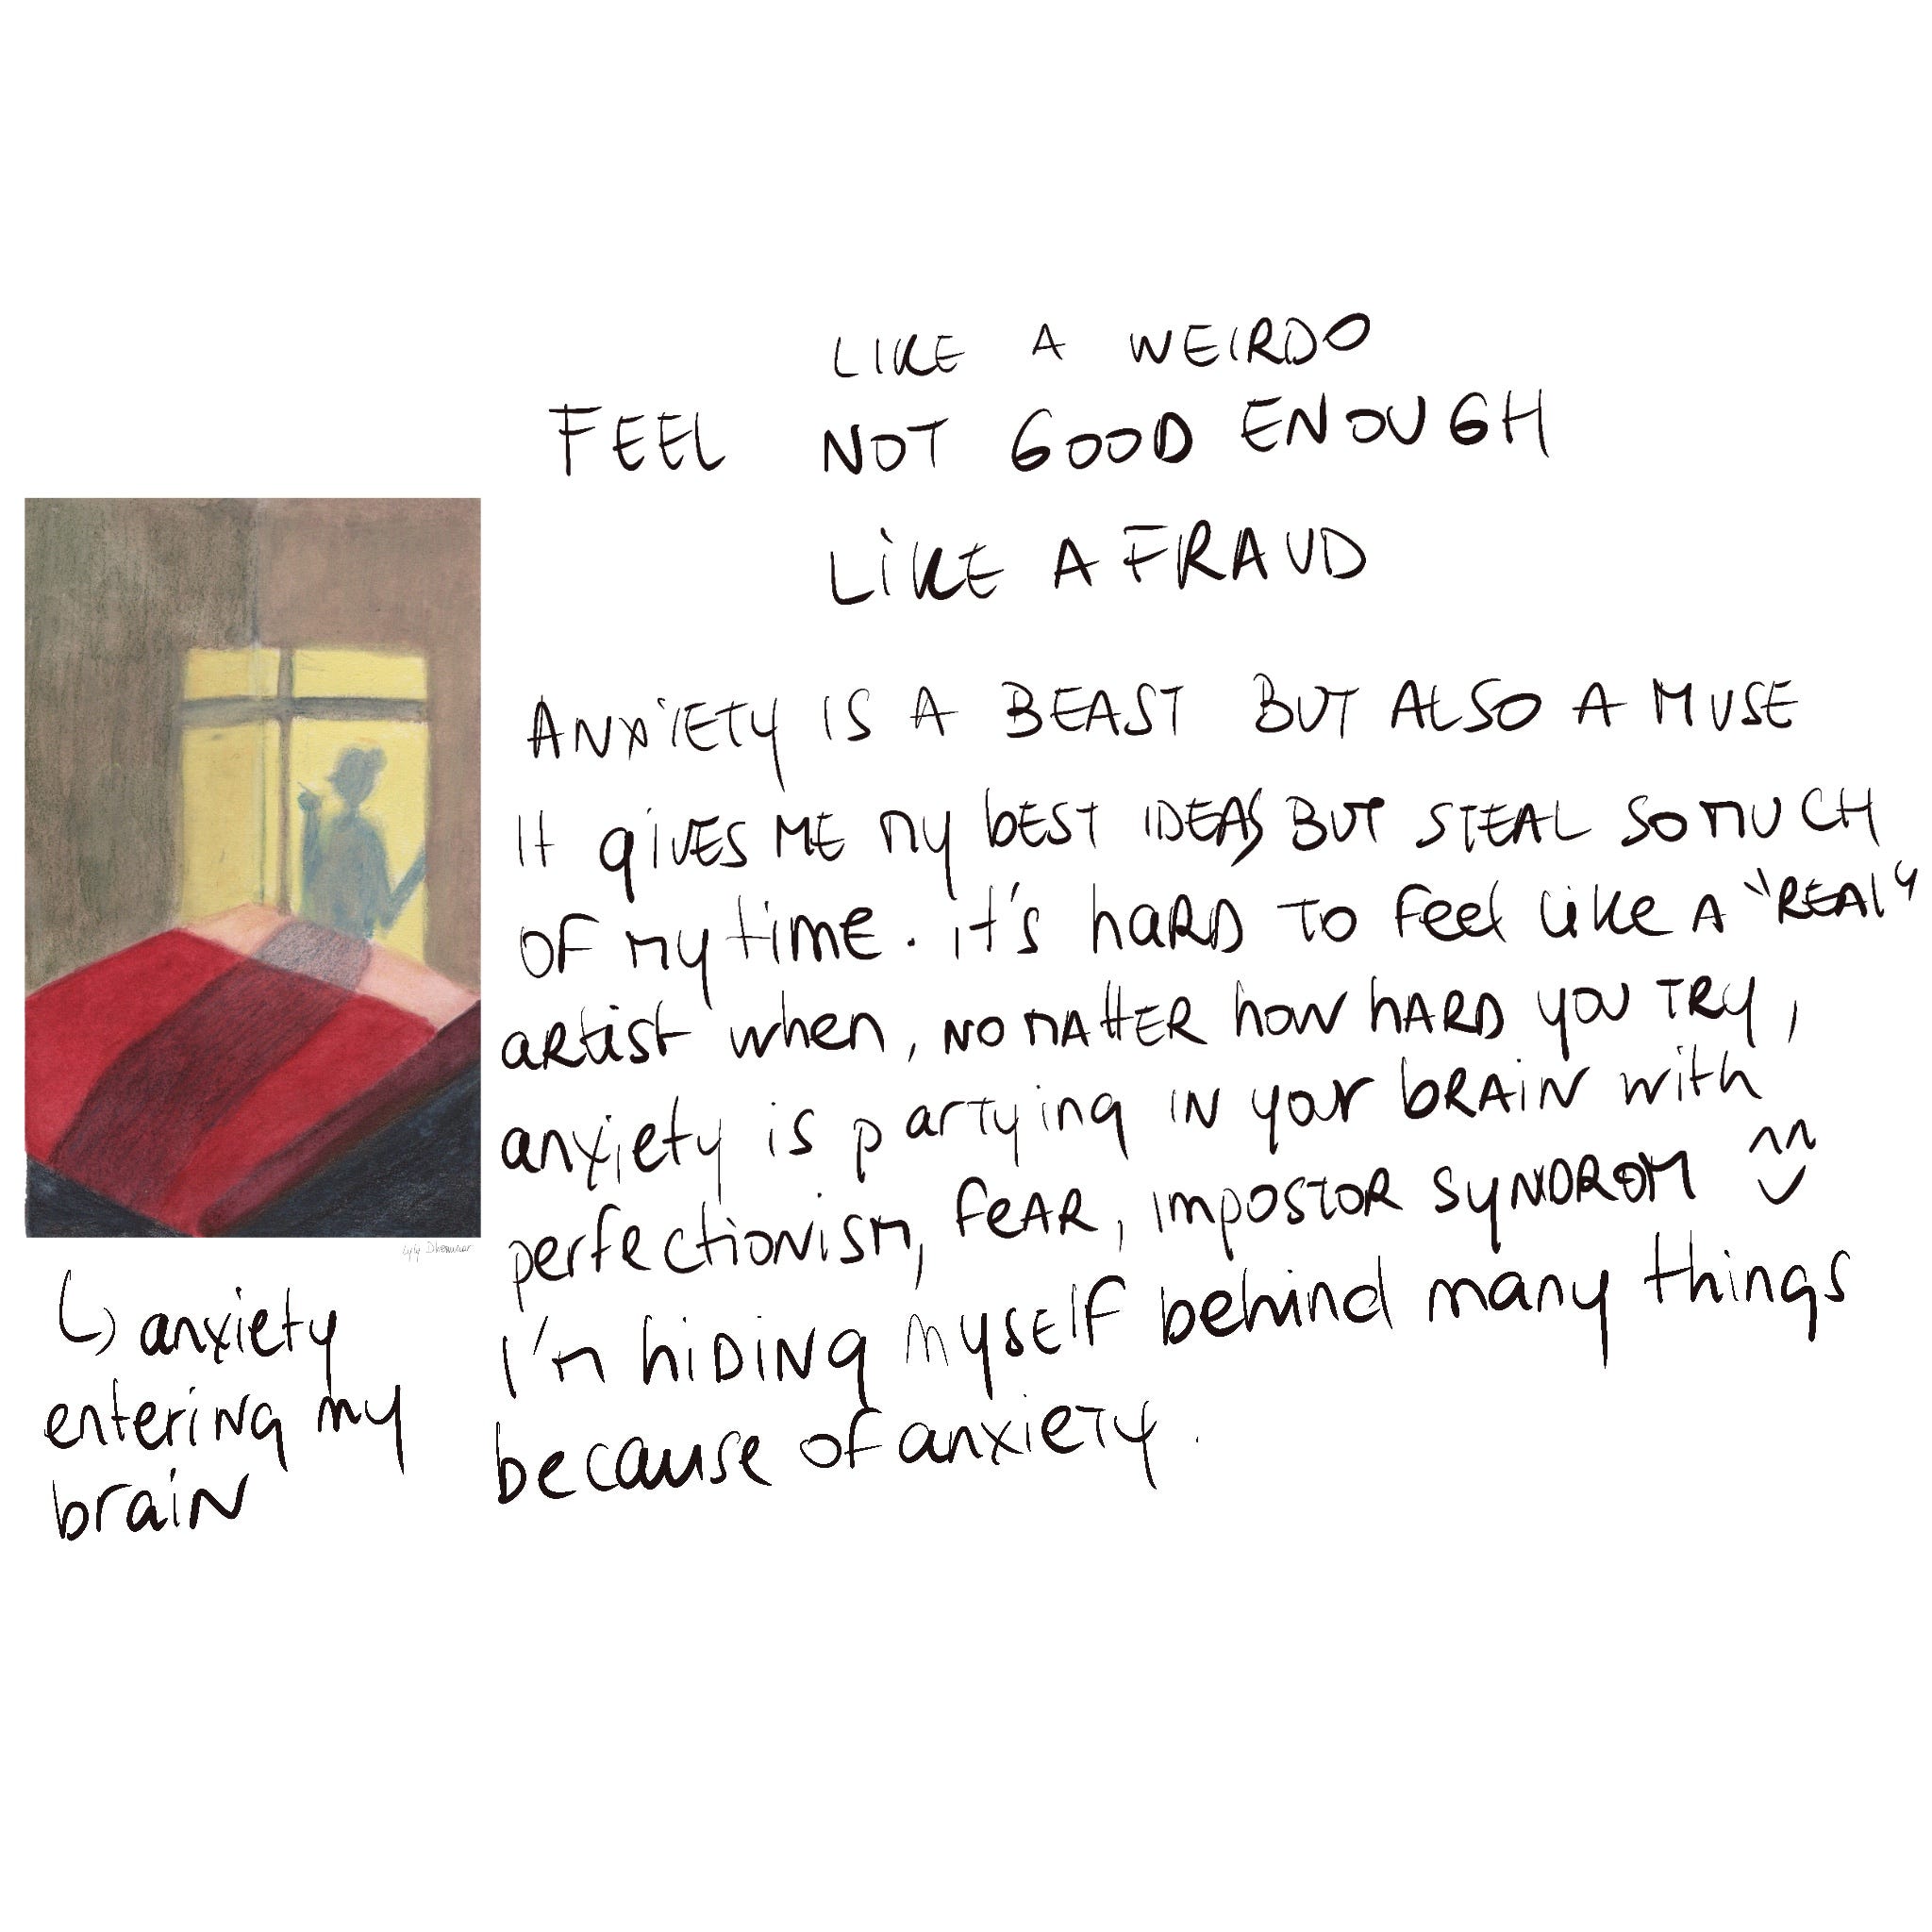 LIKE A WEIRDO
FEEL NOT GOOD ENOUGH
LIKE A FRAUD
ANXIETY IS A BEAST BUT ALSO A MUSE
It gives ME my best IDEAS BUT STEAL SO MUCH
OF my time. it's hard TO feel like A "REAL"
artist when, NO MATTER how hard you TRY,
anxiety is partying IN your brain with
perfectionism, fear, impostor syndrom
I'm hiding myself behind many things
because of anxiety.
anxiety
entering my
brain